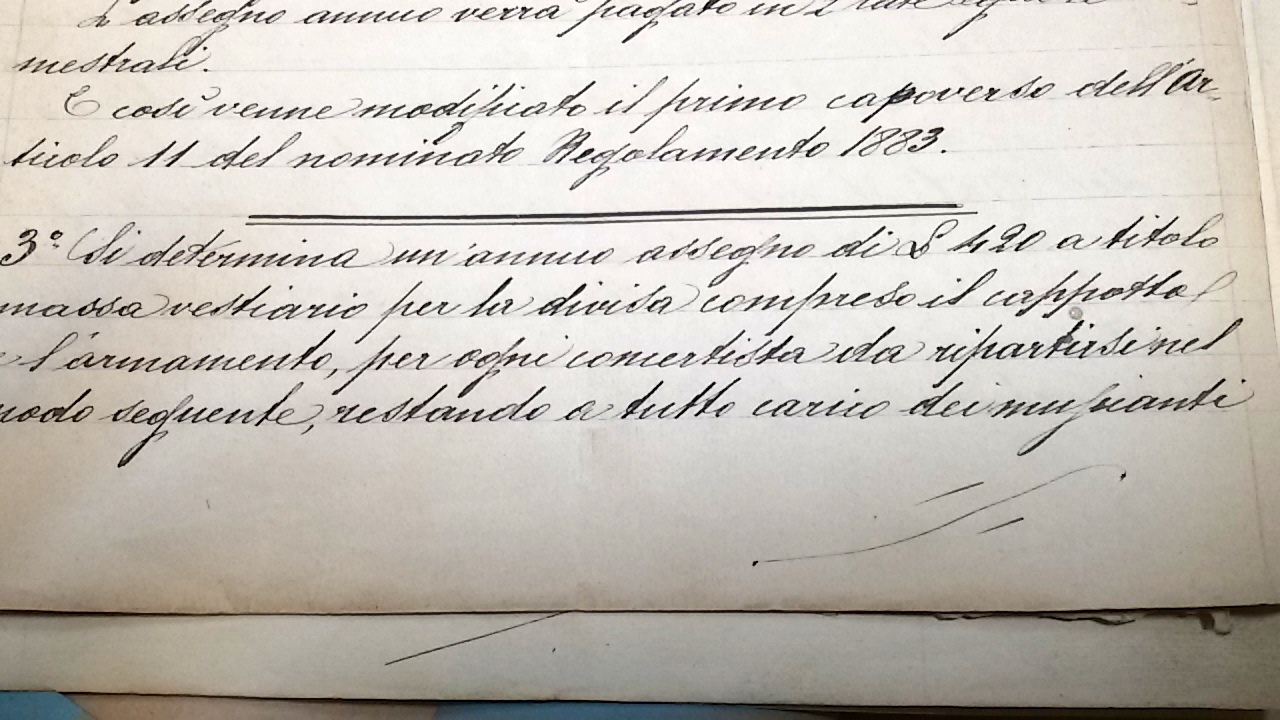 L'assegno annuo verrà pagato in 2 rate
mestrali.
E così venne modificato il primo capoverso dell'Ar-
ticolo 11 del nominato Regolamento 1883.
3° Si determina un'annuo assegno di £ 420 a titolo
massa vestiario per la divisa compreso il cappotto
e l'armamento, per ogni concertista da ripartirsi nel
modo seguente, restando a tutto carico dei musicanti